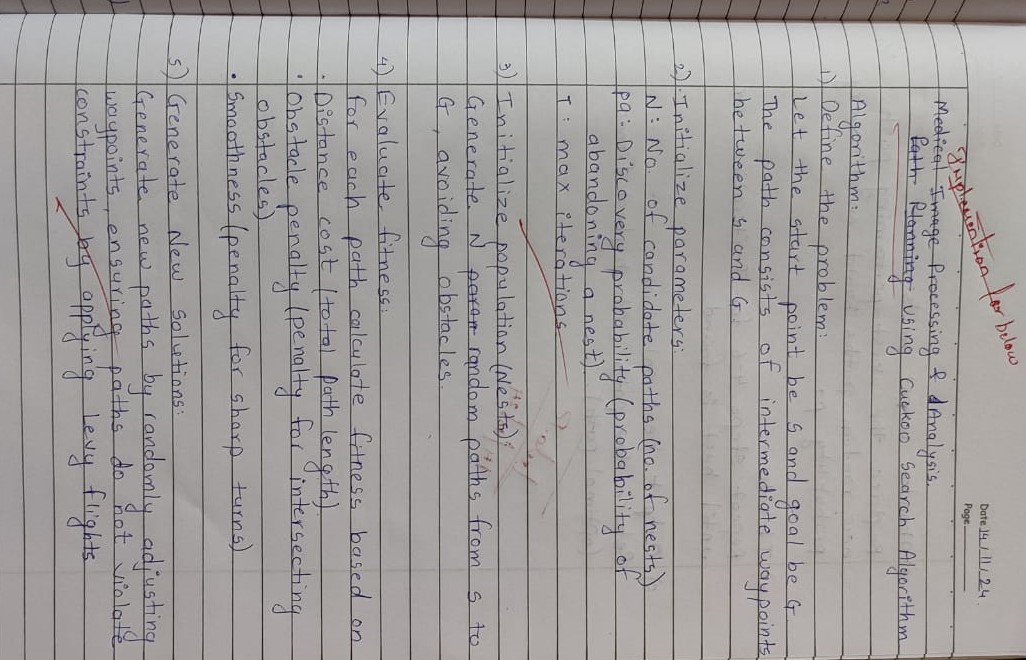 Date 14/11/24
Page
Implementation for below
Medical Image Processing & Analysis.
Path Planning using Cuckoo Search Algorithm
Algorithm:
1) Define the problem:
Let the start point be S and goal be G
The path consists of intermediate waypoints
between S and G.
2) Initialize parameters:
N: No. of candidate paths (no. of nests)
pa: Discovery probability (probability of
abandoning a nest)
T: max iterations
3) Initialize population (Nests):
Generate N param random paths from S to
G, avoiding obstacles.
4) Evaluate fitness:
for each path calculate fitness based on
• Distance cost (total path length)
• Obstacle penalty (penalty for intersecting
obstacles)
• Smoothness (penalty for sharp turns)
5) Generate New Solutions:
Generate new paths by randomly adjusting
waypoints, ensuring paths do not violate
constraints by applying Levy flights